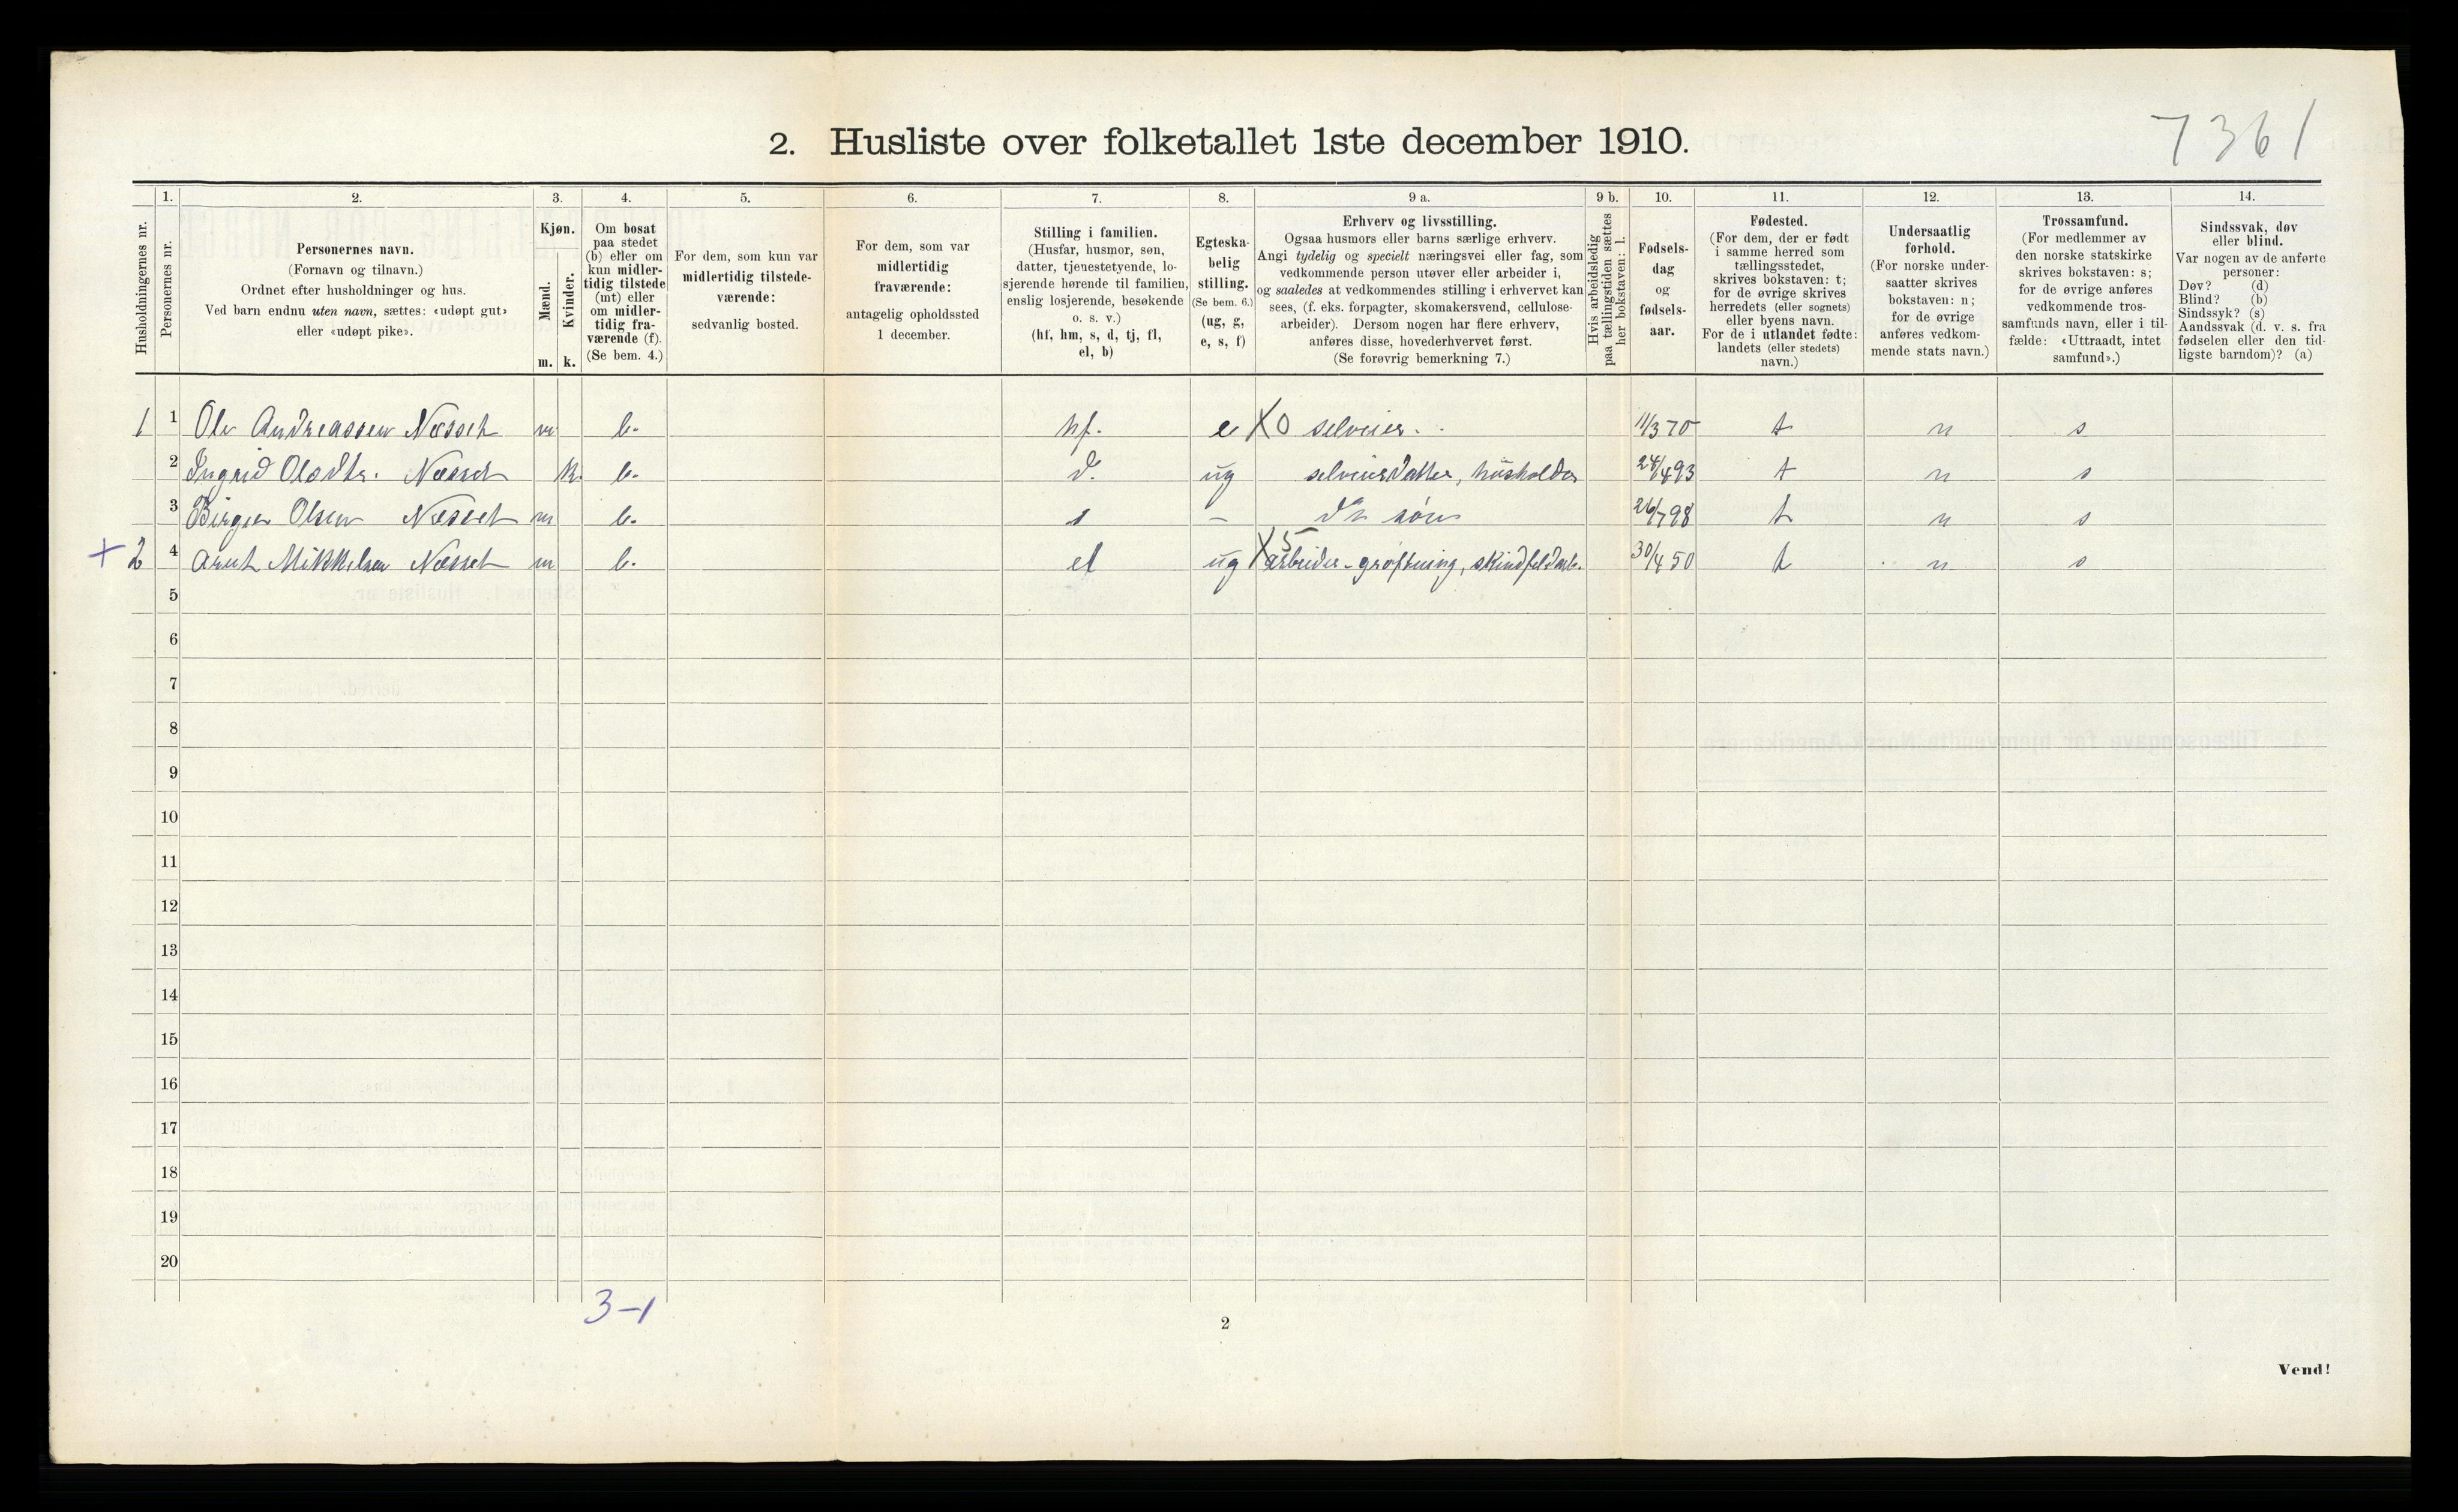 7361
2. Husliste over folketallet 1ste december 1910.
Husholdningernes nr.
1.
Personernes nr.
2.
Personernes navn.
(Fornavn og tilnavn.)
Ordnet efter husholdninger og hus.
Ved barn endnu uten navn, sættes: «udøpt gut»
eller «udøpt pike».
3.
Kjøn.
Mænd.
Kvinder.
m. k.
4.
Om bosat
paa stedet
(b) eller om
kun midler-
tidig tilstede
(mt) eller
om midler-
tidig fra-
værende (f).
(Se bem. 4.)
5.
For dem, som kun var
midlertidig tilstede-
værende:
sedvanlig bosted.
6.
For dem, som var
midlertidig
fraværende:
antagelig opholdssted
1 december.
7.
Stilling i familien.
(Husfar, husmor, søn,
datter, tjenestetyende, lo-
sjerende hørende til familien,
enslig losjerende, besøkende
o. s. v.)
(hf, hm, s, d, tj, fl,
el, b)
8.
Egteska-
belig
stilling.
(Se bem. 6.)
(ug, g,
e, s, f)
9 a.
Erhverv og livsstilling.
Ogsaa husmors eller barns særlige erhverv.
Angi tydelig og specielt næringsvei eller fag, som
vedkommende person utøver eller arbeider i,
og saaledes at vedkommendes stilling i erhvervet kan
sees, (f. eks. forpagter, skomakersvend, cellulose-
arbeider). Dersom nogen har flere erhverv,
anføres disse, hovederhvervet først.
(Se forøvrig bemerkning 7.)
9 b.
Hvis arbeidsledig
paa tællingstiden sættes
her bokstaven: l.
10.
Fødsels-
dag
og
fødsels-
aar.
11.
Fødested.
(For dem, der er født
i samme herred som
tællingsstedet,
skrives bokstaven: t;
for de øvrige skrives
herredets (eller sognets)
eller byens navn.
For de i utlandet fødte:
landets (eller stedets)
navn.)
12.
Undersaatlig
forhold.
(For norske under-
saatter skrives
bokstaven: n;
for de øvrige
anføres vedkom-
mende stats navn.)
13.
Trossamfund.
(For medlemmer av
den norske statskirke
skrives bokstaven: s;
for de øvrige anføres
vedkommende tros-
samfunds navn, eller i til-
fælde: «Uttraadt, intet
samfund».)
14.
Sindssvak, døv
eller blind.
Var nogen av de anførte
personer:
Døv? (d)
Blind? (b)
Sindssyk? (s)
Aandssvak (d. v. s. fra
fødselen eller den tid-
ligste barndom)? (a)
1 1 Ole Andreassen Næsset m b. hf. e X0 selveier. 11/3 70 t n s
2 Ingrid Olsdtr. Næsset k. b. d. ug selveierdatter, husholder 24/4 93 t n s
3 Birger Olsen Næsset m b. s - do søn 26/7 98 t n s
+ 2 4 Arnt Mikkelsen Næsset m b. el ug X5 arbeider - grøftning, skindfeldarb. 30/4 50 t n s
5
6
7
8
9
10
11
12
13
14
15
16
17
18
19
20
3-1
2
Vend!